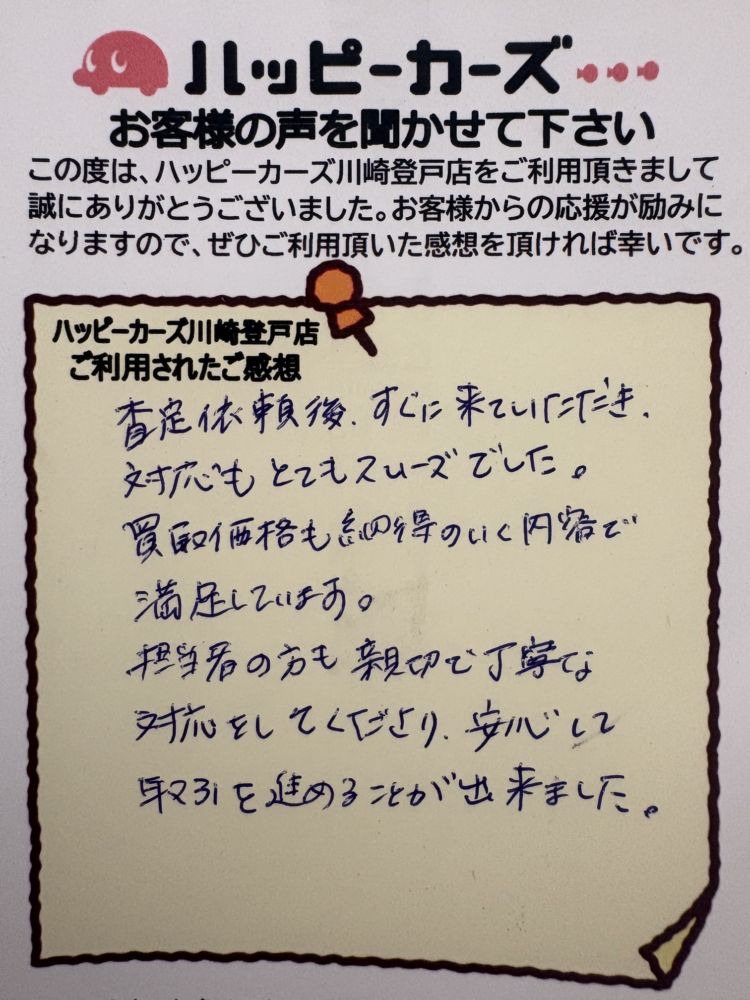 ハッピーカーズ
お客様の声を聞かせて下さい
この度は、ハッピーカーズ川崎登戸店をご利用頂きまして
誠にありがとうございました。お客様からの応援が励みに
なりますので、ぜひご利用頂いた感想を頂ければ幸いです。
ハッピーカーズ川崎登戸店
ご利用されたご感想
査定依頼後、すぐに来ていただき、
対応もとてもスムーズでした。
買取価格も納得のいく内容で
満足しています。
担当者の方も親切で丁寧な
対応をしてくださり、安心して
取引を進めることが出来ました。